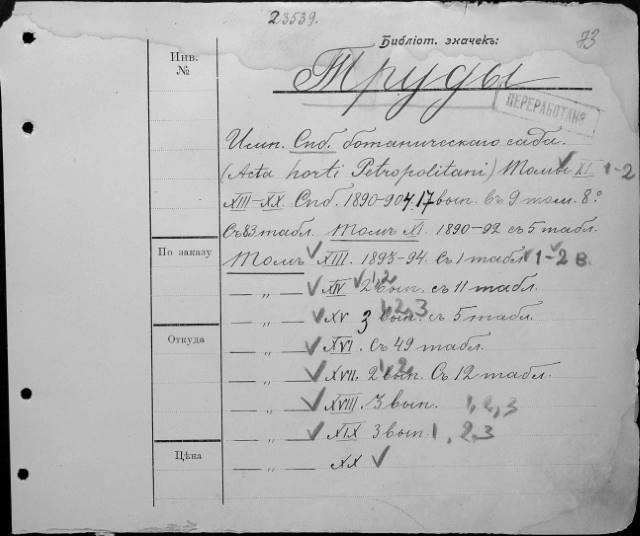 23539.
Библіот. значекъ:
73
Инв.
№
Труды
ПЕРЕРАБОТАНЯ
Имп. Спб. ботаническаго сада.
(Acta horti Petropolitani) Томы XI 1-2
XIII-XX. Спб. 1890-904. 17 вып. Съ 9 том. 8.º
Съ 83 табл. Томъ XI. 1890-92 съ 5 табл.
По заказу
Томъ XIII. 1893-94. Съ 1 табл. 1-2 в.
— „ — XIV 2 вып. 1,2 съ 11 табл.
— „ — XV 3 вып. 1,2,3 съ 5 табл.
Откуда
— „ — XVI. Съ 49 табл.
— „ — XVII. 2 вып. 1,2 Съ 12 табл.
— „ — XVIII. 3 вып. 1,2,3
— „ — XIX 3 вып. 1,2,3
Цѣна
— „ — XX